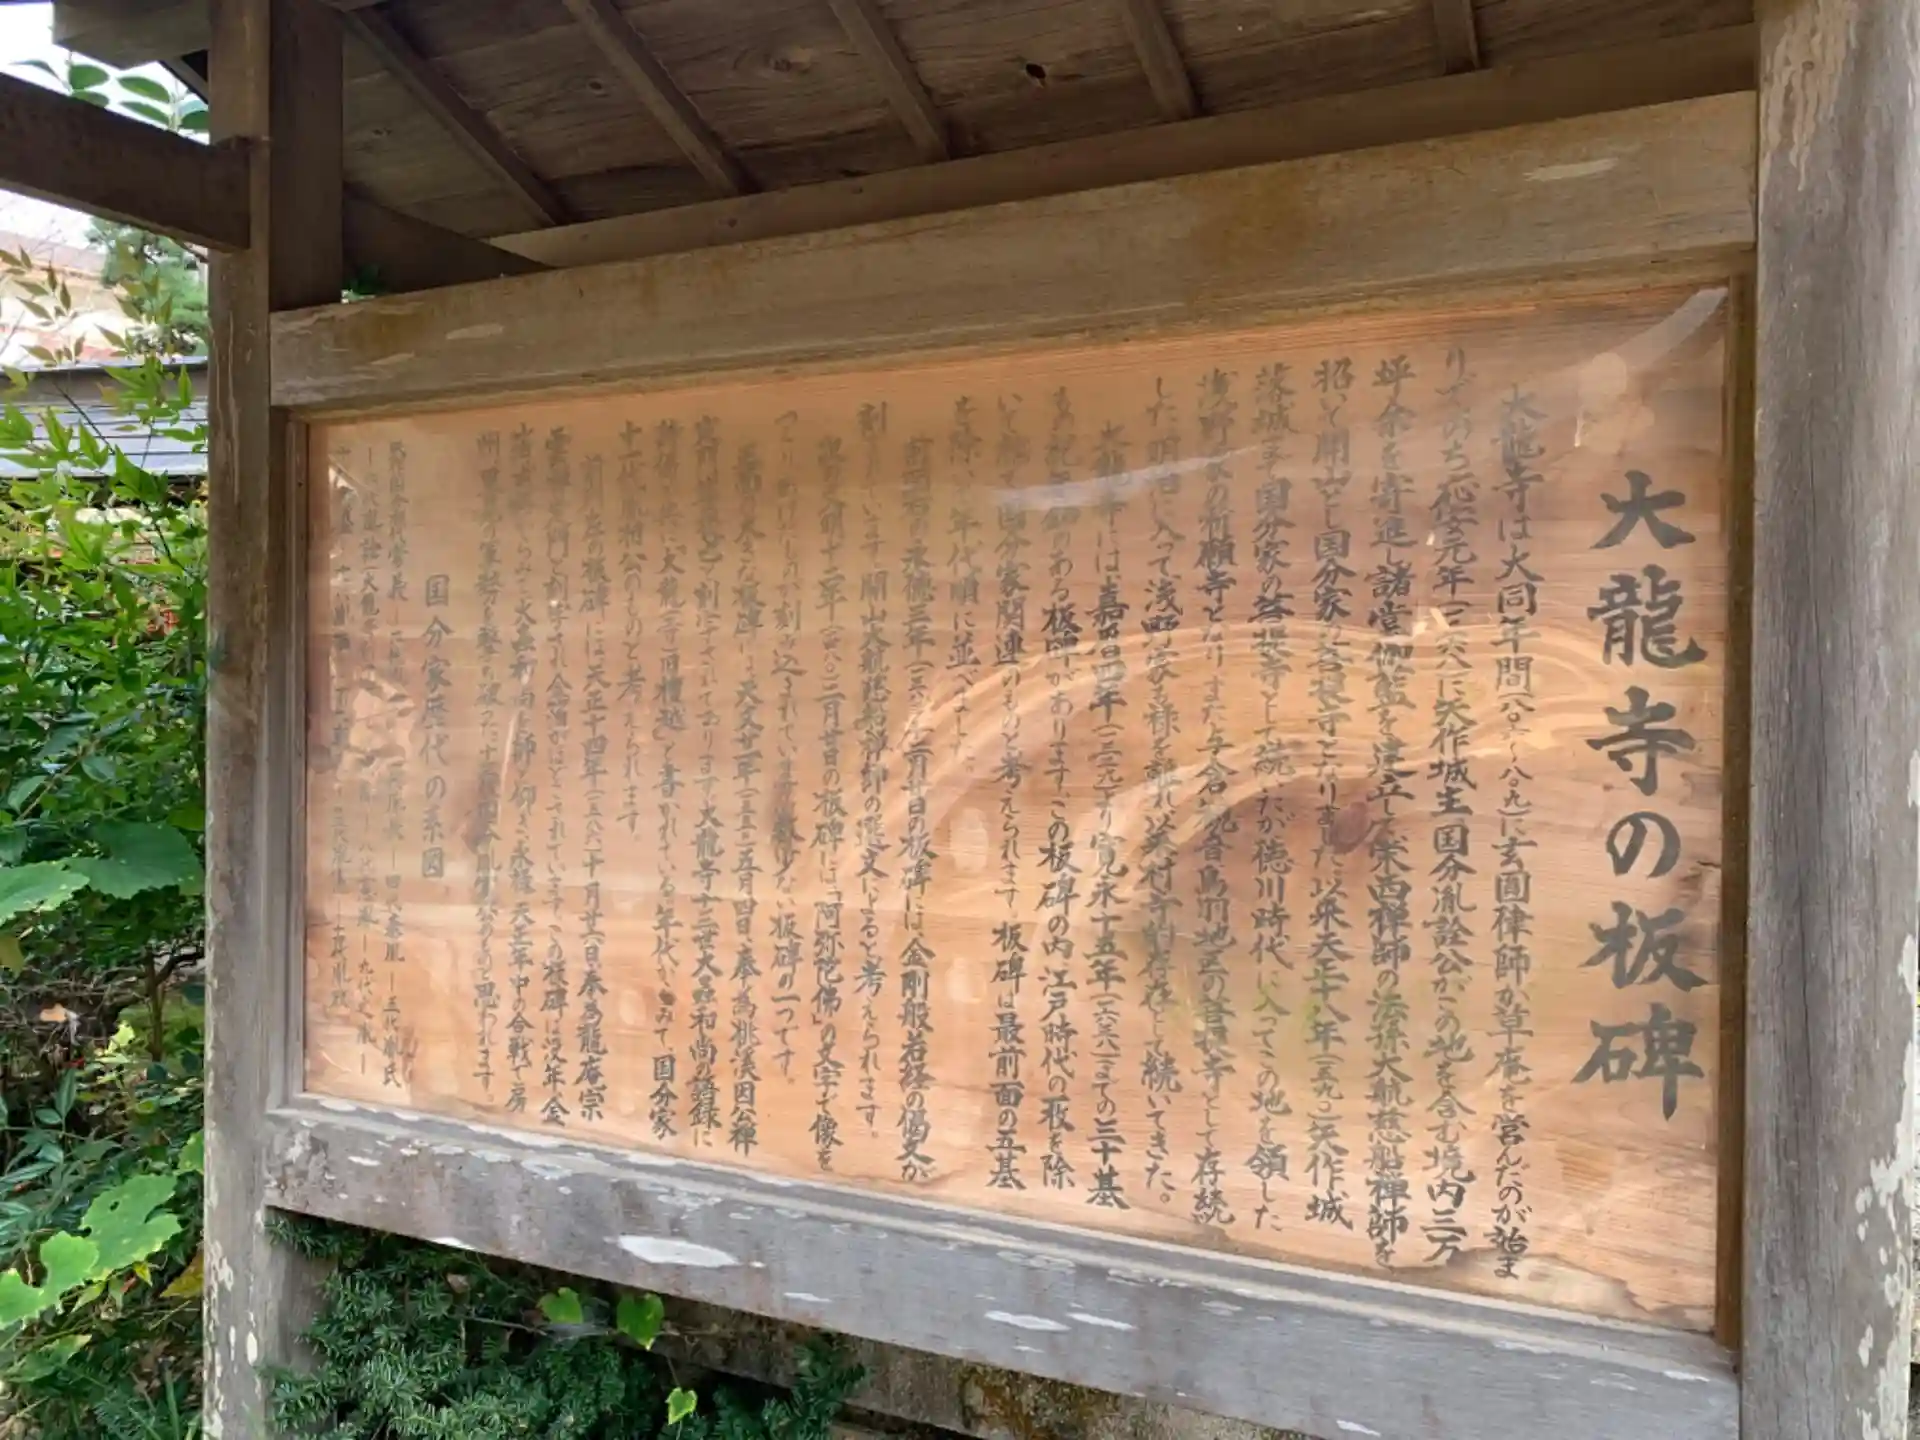 大龍寺の板碑
大龍寺は大同年間(八〇六〜八〇九)に玄圓律師が草庵を営んだのが始ま
りでのち応安元年(一三六八)に矢作城主国分胤詮公がこの地を含む境内三万
坪余を寄進し諸堂伽藍を建立して栄西禅師の法孫大航慈船禅師を
招いて開山とし国分家の菩提寺となりました。以来天正十八年(一五九〇)矢作城
落城まで国分家の菩提寺として続いたが徳川時代に入ってこの地を領した
浅野家の祈願寺となりまた与倉 観音 鳥羽地区の菩提寺として存続
した。明治に入って浅野家も檀を離れ以来村寺的存在で続いてきた。
大龍寺には、嘉暦四年(一三二九)より寛永十五年(一六三八)までの三十基
の紀年銘のある板碑があります。この板碑の内 江戸時代の板を除
いて総て国分家関連のものと考えられます。板碑は最前面の五基
を除いて年代順に並べました。
前面右の永徳三年 二月廿日の板碑には、金剛般若経の偈文が
刻まれています。開山大航慈船禅師の 文によると考えられます。
文明十二年 二月廿日の板碑には「阿弥陀佛」の文字で像を
つくりあげたものが刻み込まれています。数少ない板碑の一つです。
大きな板碑は天文廿一年(一五五二)五月四日、奉為桃渓因公禅
定門 と刻字されております。大龍寺十三世大 和尚の語録に
大龍(寺)旧檀越」と書かれている年代からみて国分家
十一代胤相公のものと考えられます。
前左の板碑には天正十四年(一五八六)十月廿六日奉為龍庵宗
雲禅定門と刻字され金箔がほどこされています。この板碑は没年、金
箔 からみて大 和尚を師と仰ぎ永禄 天正年中の合戦で房
州里見の軍勢を撃ち破った十 公のものと思われます。
国分家歴代の系図
四代泰胤ー三代胤氏
九代之胤ー